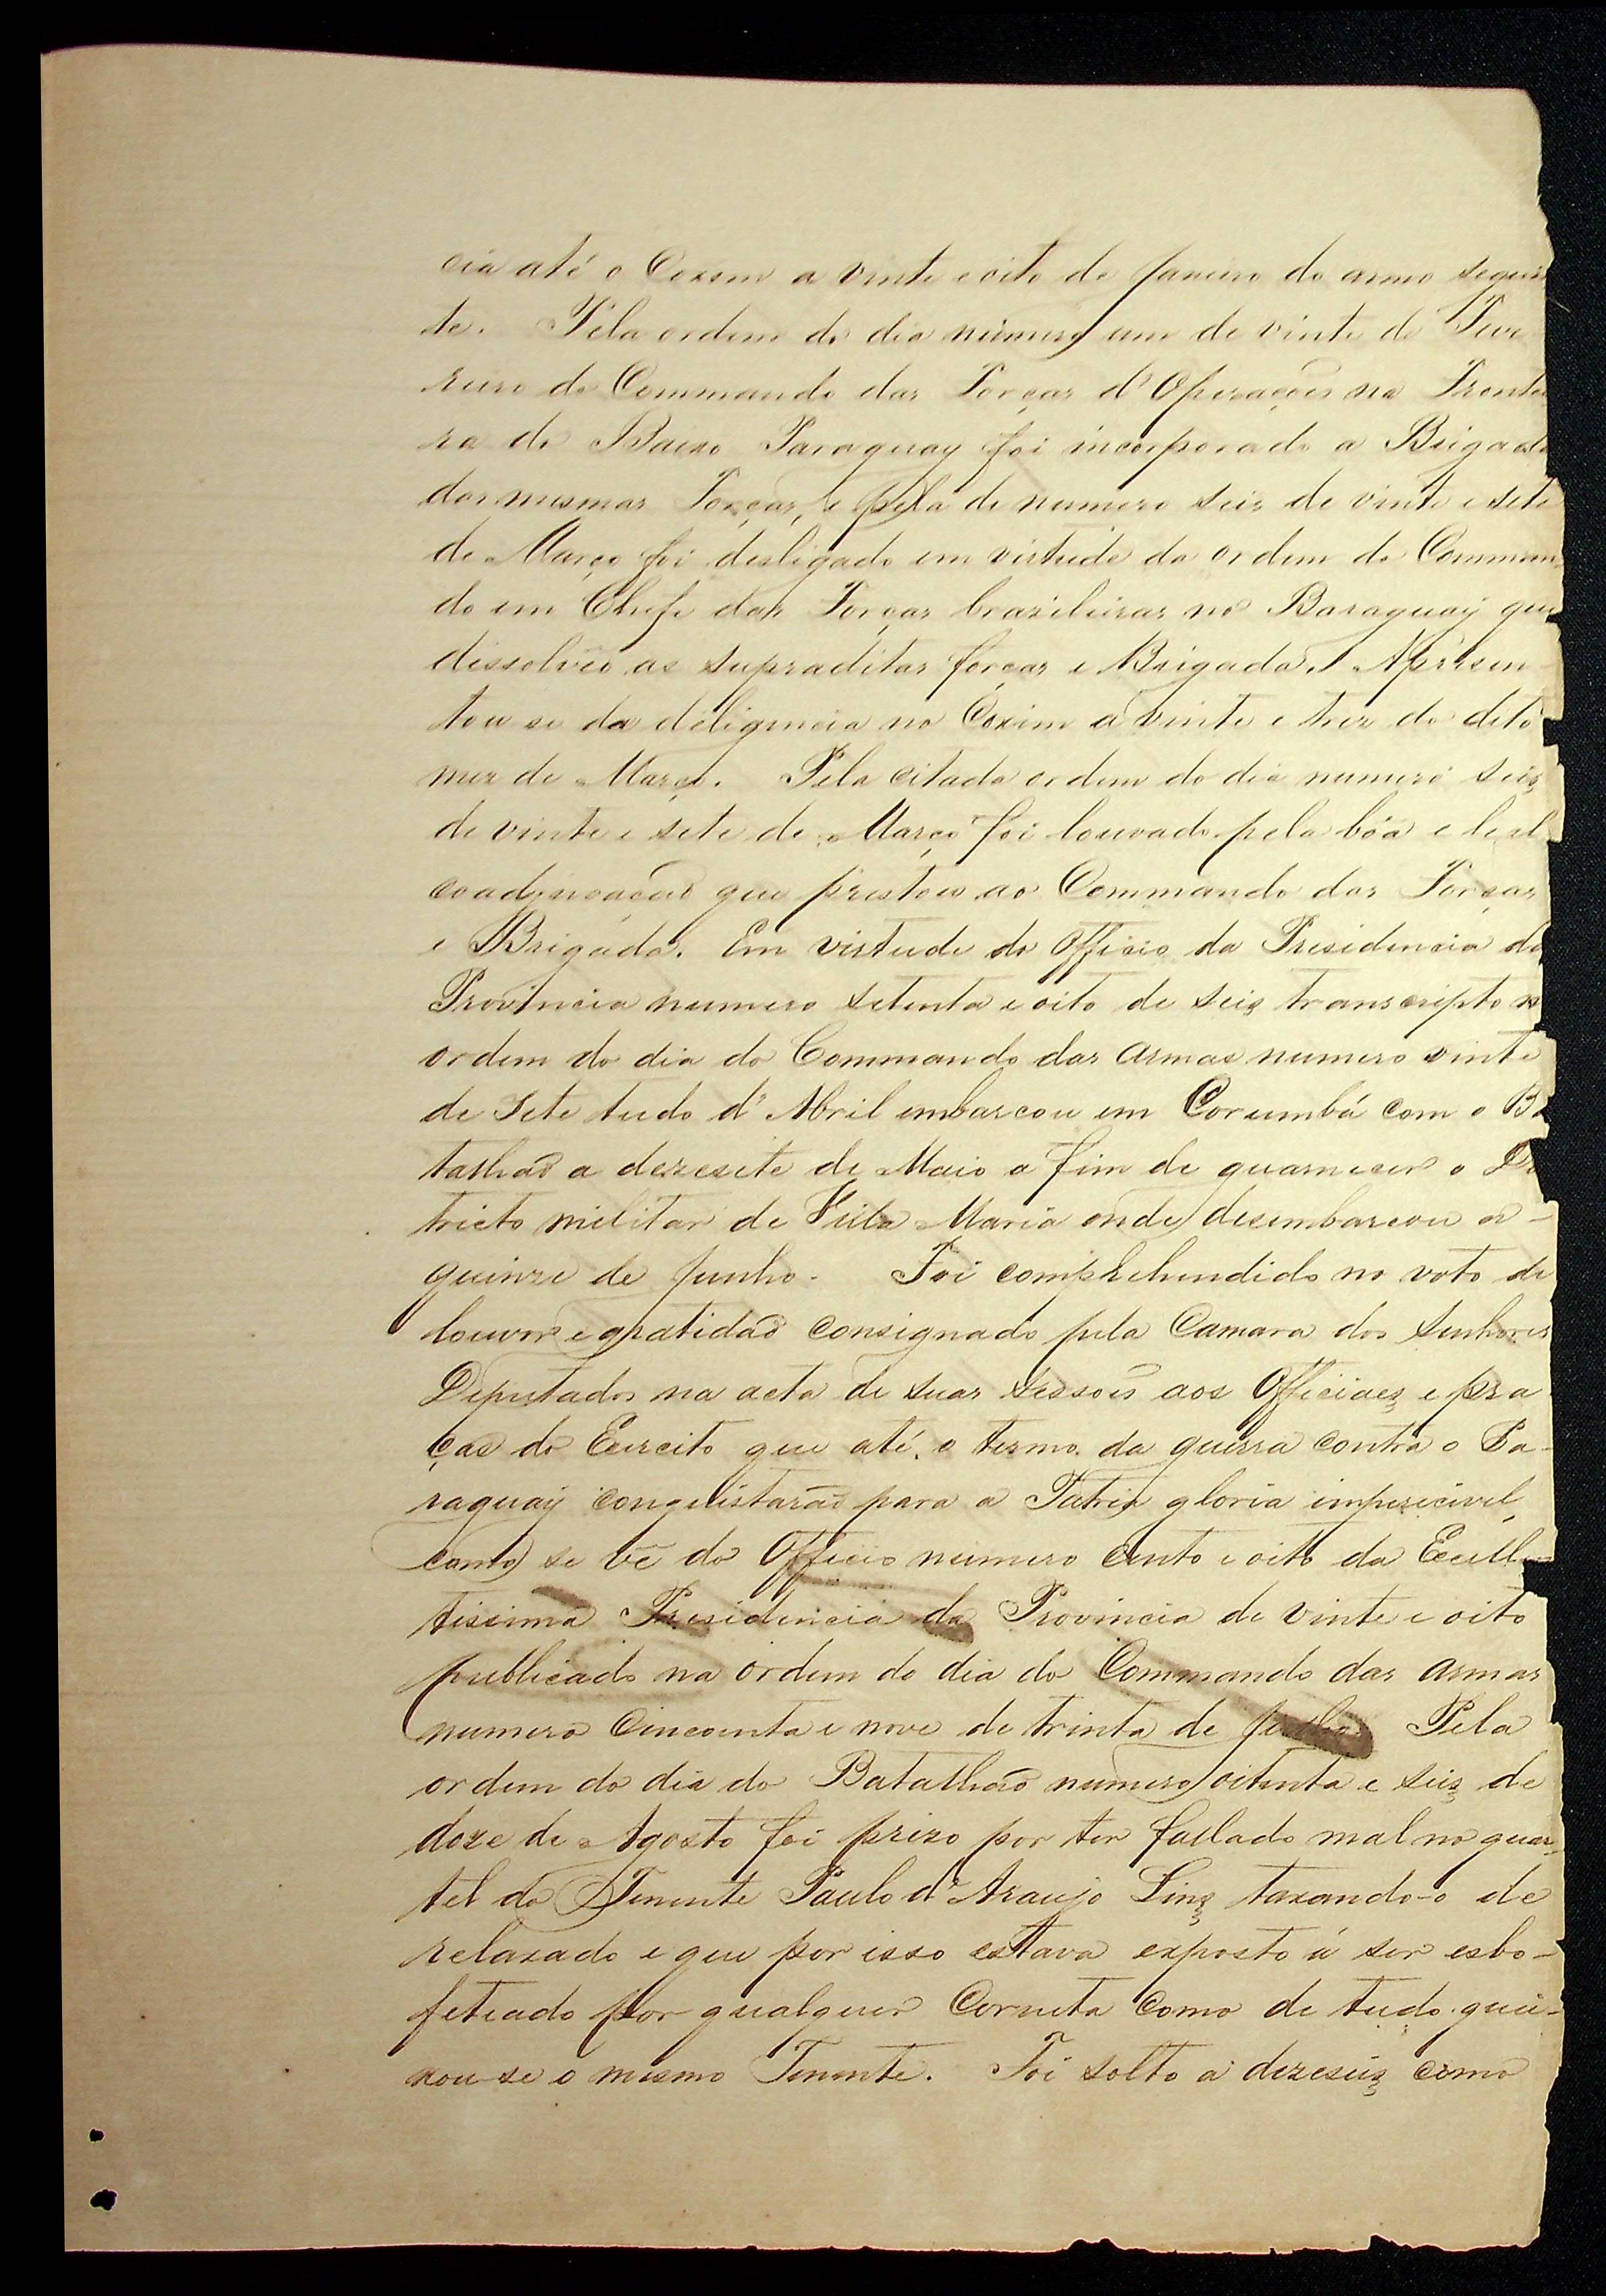 cia até o Coxim a vinte e oito de Janeiro do anno seguin
te. Pela ordem do dia numero um de vinte de Feve
reiro do Commando das Forças d'Operações na Frontei
ra do Baixo Paraguay foi incorporado a Brigada
das mesmas Forças, e pela de numero seis de vinte e sete
de Março foi desligado em virtude da ordem do Comman
do em Chefe das Forças brazileiras no Paraguay que
dissolveo as supraditas forças e Brigada. Apresen
tou se da deligencia no Coxim a vinte e trez do dito
mez de Março. Pela citada ordem do dia numero seis
de vinte e sete de Março foi louvado pela bôa e leal
coadjuvação que prestou ao Commando das Forças
e Brigada. Em virtude do Officio da Presidencia da
Provincia numero setenta e oito de seis transcripto n
ordem do dia do Commando das Armas numero vinte
de Sete tudo d'Abril embarcou em Corumbá com o Ba
talhaõ a dezesete de Maio a fim de guarnecer o Di
tricto militar de Villa Maria onde desembarcou a
quinze de Junho. Foi comprehendido no voto de
louvor e gratidaõ consignado pela Camara dos Senhores
Deputados na acta de suas sessoẽs aos Officiaes e pra
ças do Exercito que até o termo da guerra contra o Pa-
raguay conquistaraõ para a Patria gloria imperecivel
como se vê do Officio numero cento e oito da Excellen
tissima Presidencia da Provincia de vinte e oito
publicado na ordem do dia do Commando das Armas
numero Cincoenta e nove de trinta de Pela
ordem do dia do Batalhaõ numero oitenta e seis de
doze de Agosto foi prezo por ter fallado mal no quar-
tel do Tenente Paulo d'Araujo Lins taxando-o de
relaxado e que por isso estava exposto á ser esbo-
feteado por qualquer Corneta como de tudo quei-
xou-se o mesmo Tenente. Foi solto a dezeseis como